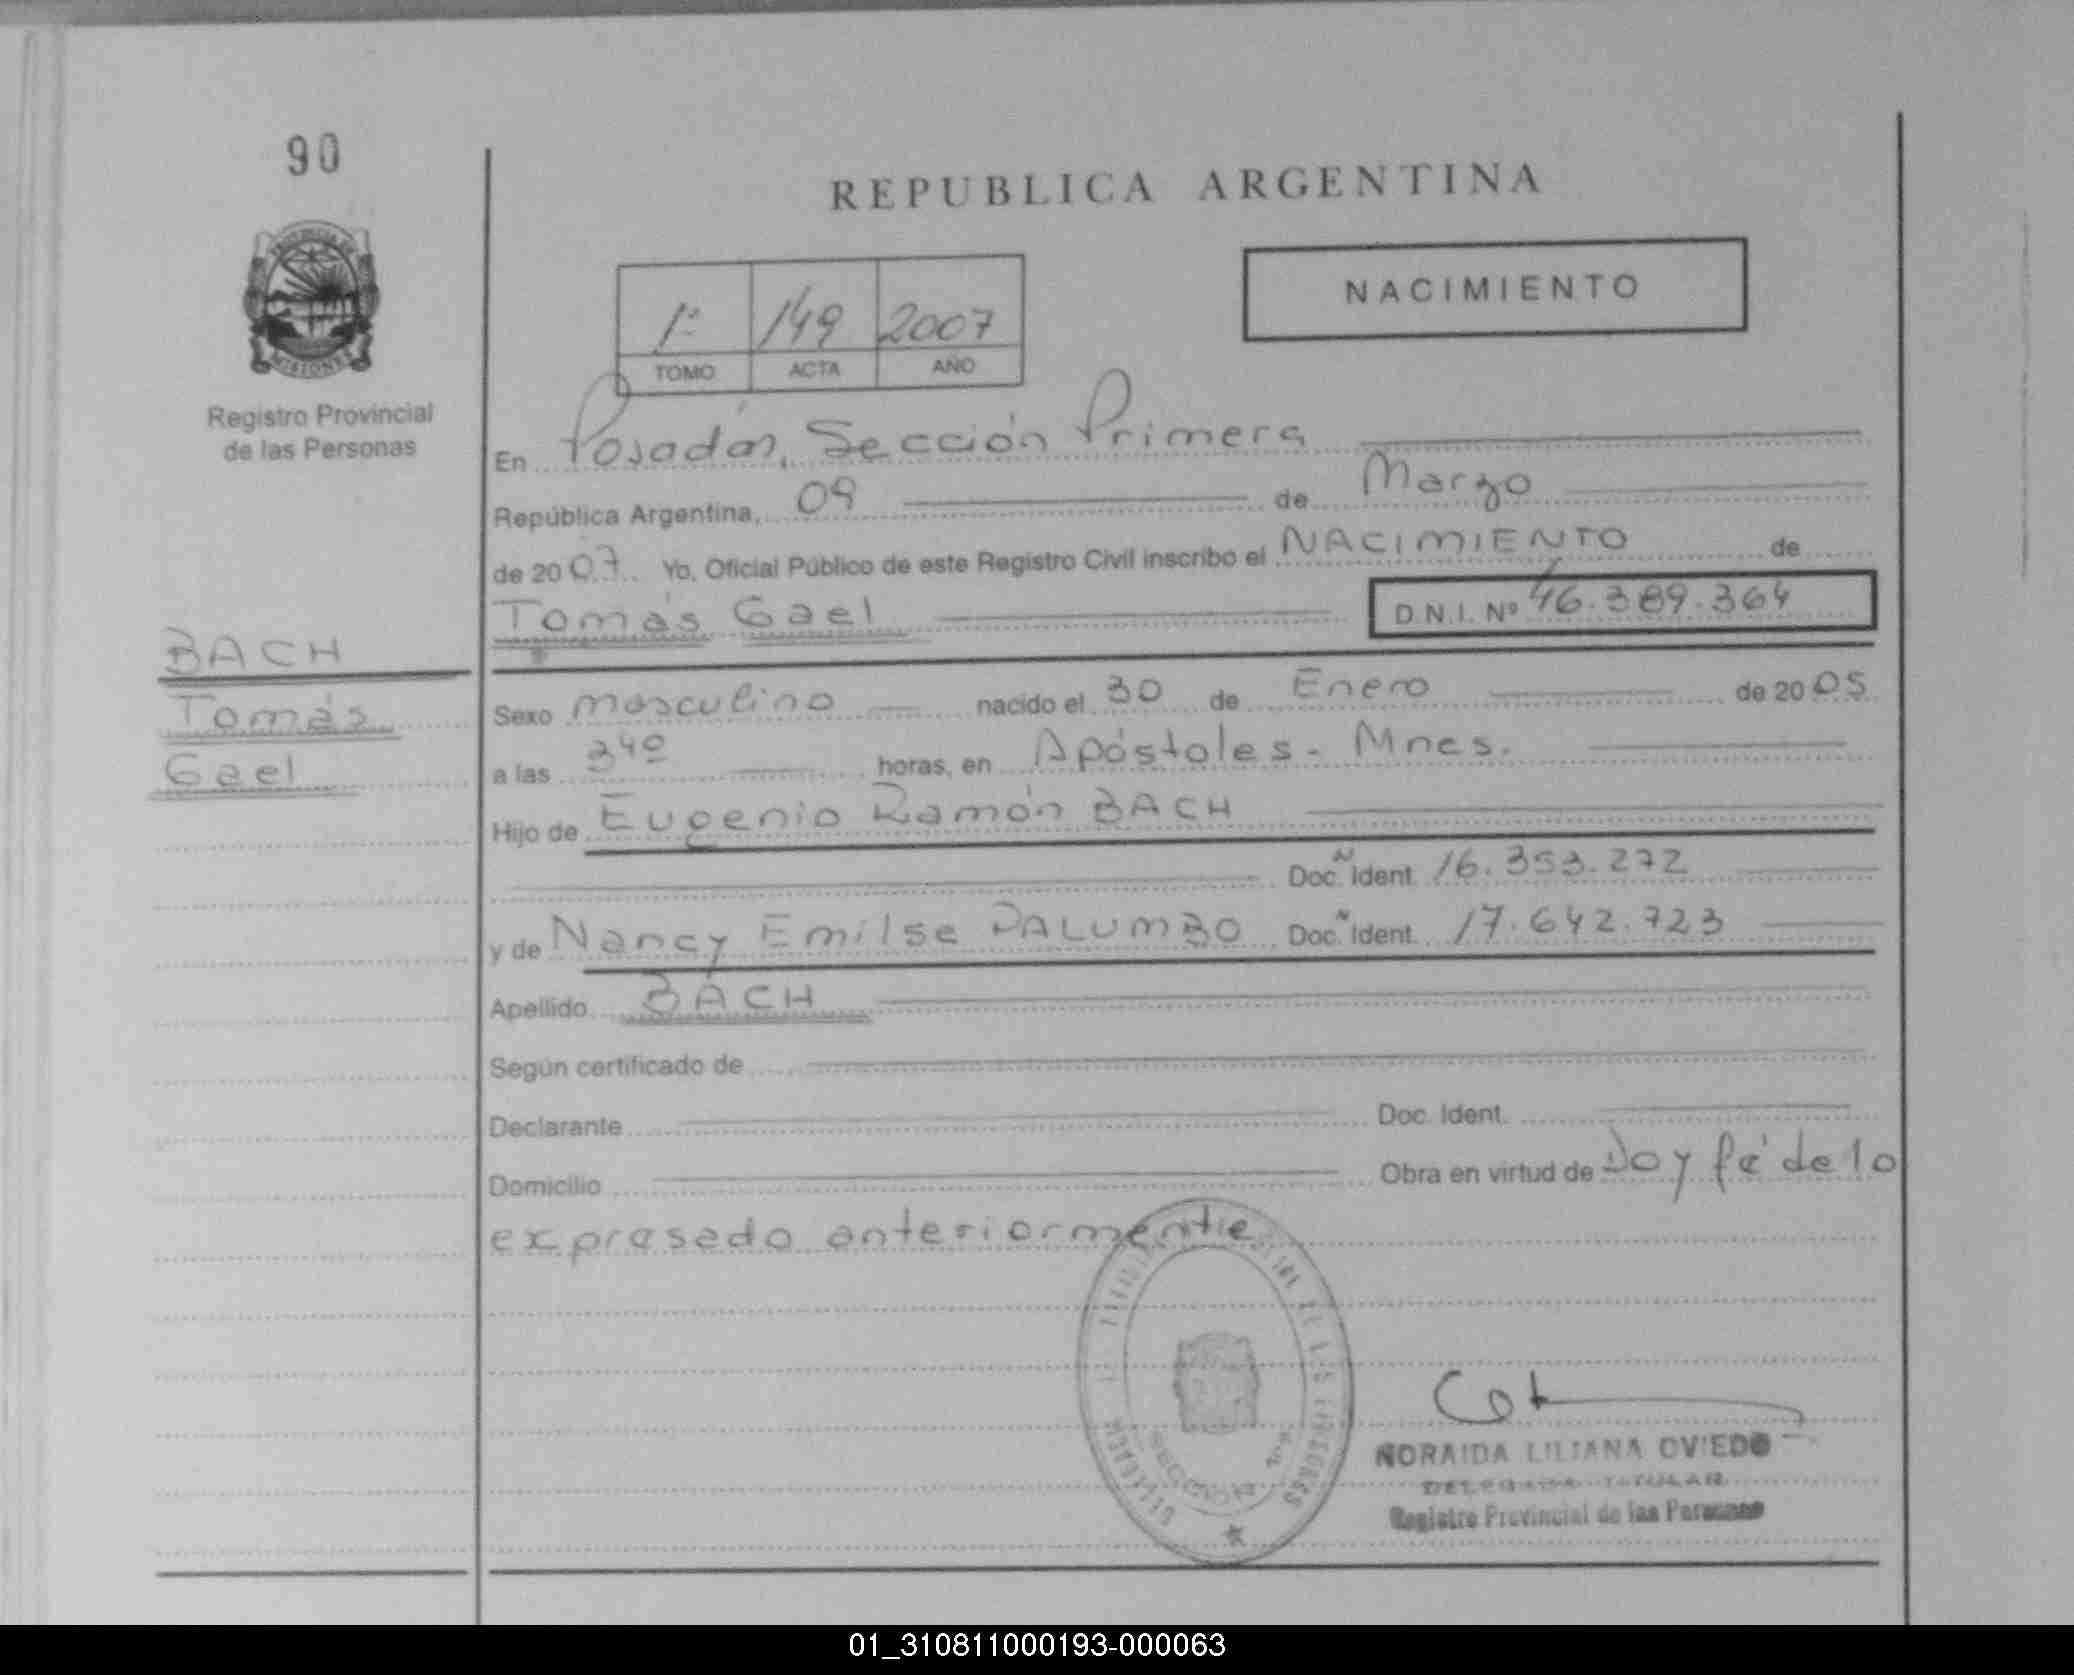 90
PROVINCIA DE
MISIONES
Registro Provincial
de las Personas
REPUBLICA ARGENTINA
1º 149 2007
TOMO ACTA AÑO
NACIMIENTO
En Posadas, Sección Primera
República Argentina, 09 de Marzo
de 2007. Yo, Oficial Público de este Registro Civil inscribo el NACIMIENTO de
Tomás Gael D.N.I. Nº 46.389.364
BACH
Tomás
Gael
Sexo masculino nacido el 30 de Enero de 2005
a las 34º horas, en Apóstoles - Mnes.
Hijo de Eugenio Ramón BACH
Doc. Ident. 16.353.272
y de Nancy Emilse PALUMBO Doc. Ident. 17.642.723
Apellido BACH
Según certificado de
Declarante Doc. Ident.
Domicilio Obra en virtud de Doy fé de lo
expresado anteriormente
NORAIDA LILIANA OVIEDO
DELEGADA TITULAR
Registro Provincial de las Personas
01_310811000193-000063